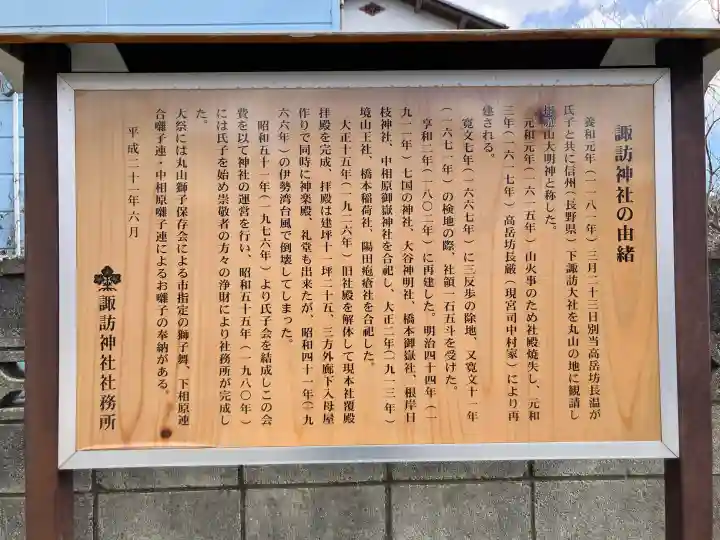 諏訪神社の由緒
養和元年(一一八一年)三月二十三日別当高岳坊長温が
氏子と共に信州(長野県)下諏訪大社を丸山の地に観請し
山大明神と称した。
元和元年(一六一五年)山火事のため社殿焼失し、元和
三年(一六一七年)高岳坊長厳(現宮司中村家)により再
建される。
寛文七年(一六六七年)に三反歩の除地、又寛文十一年
(一六七一年)の検地の際、社領一石五斗を受けた。
享和二年(一八〇二年)に再建した。明治四十四年(一
九一一年)七国の神社、大谷神明社、橋本御嶽社、根岸日
枝神社、中相原御嶽神社を合祀し、大正二年(一九一三年)
境山王社、橋本稲荷社、陽田疱瘡社を合祀した。
大正十五年(一九二六年)旧社殿を解体して現本社覆殿
拝殿を完成、拝殿は建坪十一坪二十五、三方外廊下入母屋
作りで同時に神楽殿、礼堂も出来たが、昭和四十一年(一九
六六年)の伊勢湾台風で倒壊してしまった。
昭和五十一年(一九七六年)より氏子会を結成しこの会
費を以て神社の運営を行い、昭和五十五年(一九八〇年)
には氏子を始め崇敬者の方々の浄財により社務所が完成し
た。
大祭には丸山獅子保存会による市指定の獅子舞、下相原連
合囃子連・中相原囃子連によるお囃子の奉納がある。
平成二十一年六月
諏訪神社社務所